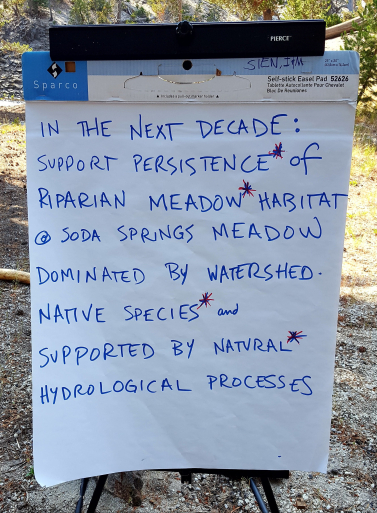 PIERCE
SIEN, ITM
Sparco
Self-stick Easel Pad 52626
Tablette Autocollante Pour Chevalet
Bloc De Reuniones
IN THE NEXT DECADE:
SUPPORT PERSISTENCE* of
RIPARIAN MEADOW* HABITAT
@ SODA SPRINGS MEADOW
DOMINATED BY WATERSHED.
NATIVE SPECIES* and
SUPPORTED BY NATURAL*
HYDROLOGICAL PROCESSES